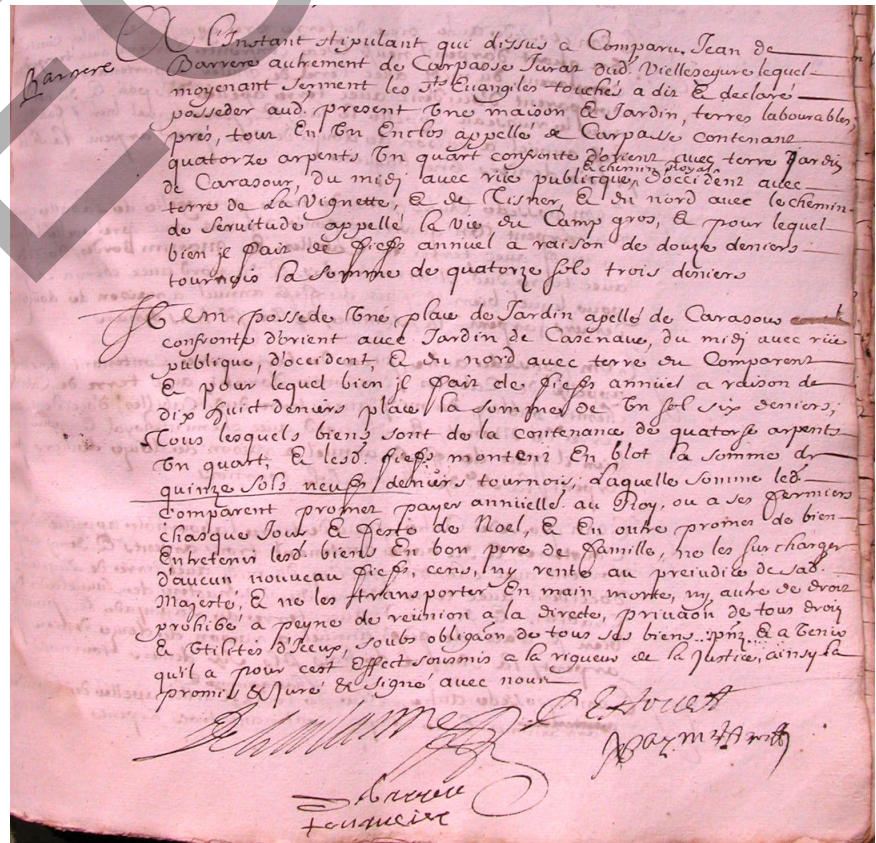 Barrere
A l'Instant stipulant qui dissus a Comparu Jean de
Barrere autrement de Carpasse Jurat dud. Viellesegure lequel
moyenant serment les Sts Evangiles touchés a dit & declaré
posseder aud. present Une maison & Jardin, terres labourables,
prés, tout En Un Enclos appellé de Carpasse contenant
quatorze arpents Un quart confronte d'orient avec terre Jardin
& chemin Royal
de Carasour, du midj avec rüe publicque, d'occident avec
terre de La Vignette, & de Tisner, & du nord avec le chemin
de servitude appellé la vie du Camp gros, & pour lequel
bien jl fait de fieffs annuel a raison de douze deniers
tournois la somme de quatorze sols trois deniers
Item possede Une place de Jardin apellé de Carasour
confronte d'orient avec Jardin de Casenave, du midj avec rüe
publique, d'occident, & du nord avec terre du Comparent
& pour lequel bien jl fait de fieffs annüel a raison de
dix huict deniers place la somme de Un sol six deniers;
Tous lesquels biens sont de la contenance de quatorse arpents
Un quart, & lesd. fieffs montent En blot la somme de
quinze sols neuff deniers tournois, Laquelle somme led.
Comparent promet payer annüelle. au Roy, ou a ses fermiers
chasque Jour & feste de Noel, & En outre promet de bien
Entretenir lesd. biens En bon pere de famille, ne les surcharger
d'aucun nouveau fieffs, cens, ny rente au prejudice de sad.
Majesté, & ne les transporter En main morte, ny autre de droit
prohibé a peyne de reünion a la directe, privaon de tous droits
& Utilités d'Iceux, soubs obligaon de tous ses biens pnz & a Venir
qu'il a pour cest Effect sousmis a la rigueur de la Justice, ainsy la
promis & Juré & signé avec nous